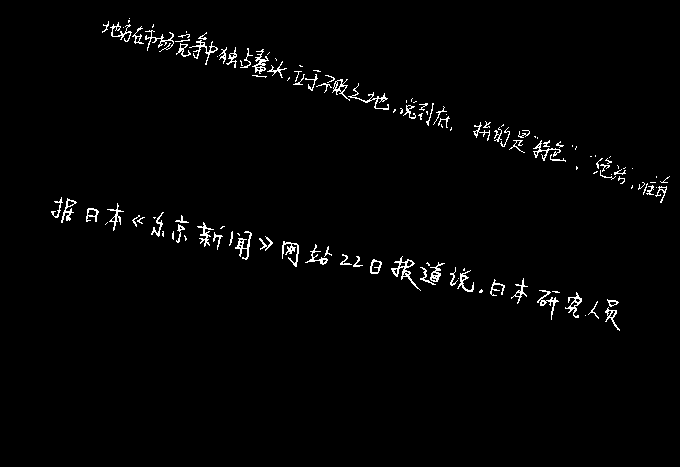 地方在市场竞争中独占鳌头,立于不败之地,说到底,拼的是“特色”、“绝活”,唯有
据日本《东京新闻》网站22日报道说,日本研究人员